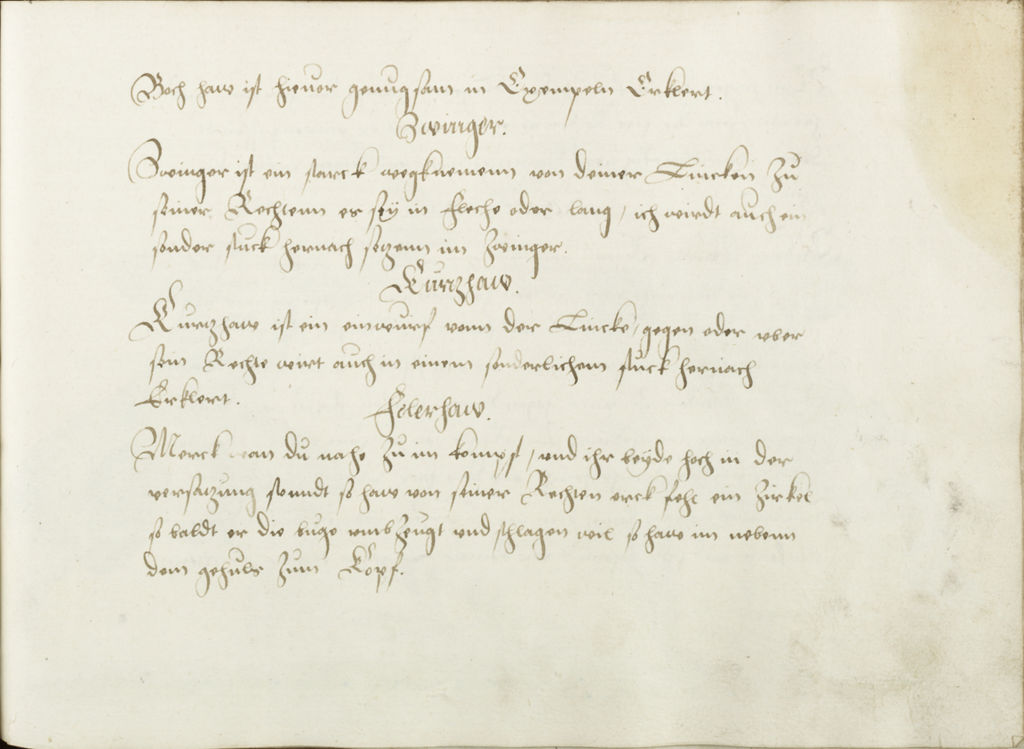 Boch haw ist hieuor genugsam in Exempeln Erklert.
Zwinger.
Zwinger ist ein starck wegknemenn von deiner Lincken Zu
seiner Rechtenn er seÿ in fleche oder lang, ich wirdt auch ein
sonder stuck hernach setzenn im Zwinger.
Kurtzhaw.
Kurtzhaw ist ein einwurf vonn der Lincke, gegen oder vber
sein Rechte wirt auch in einem sonderlichem stuck hernach
Erklert.
Felerhaw.
Merck wan du nahe Zu im kompst, vnd ihr beyde hoch in der
versatzung stenndt so haw von seiner Rechten fehl ein Zirkel
so baldt er die vmb Zeugt vnd schlagen wil so haw im nebenn
dem gehultz Zum Kopf.